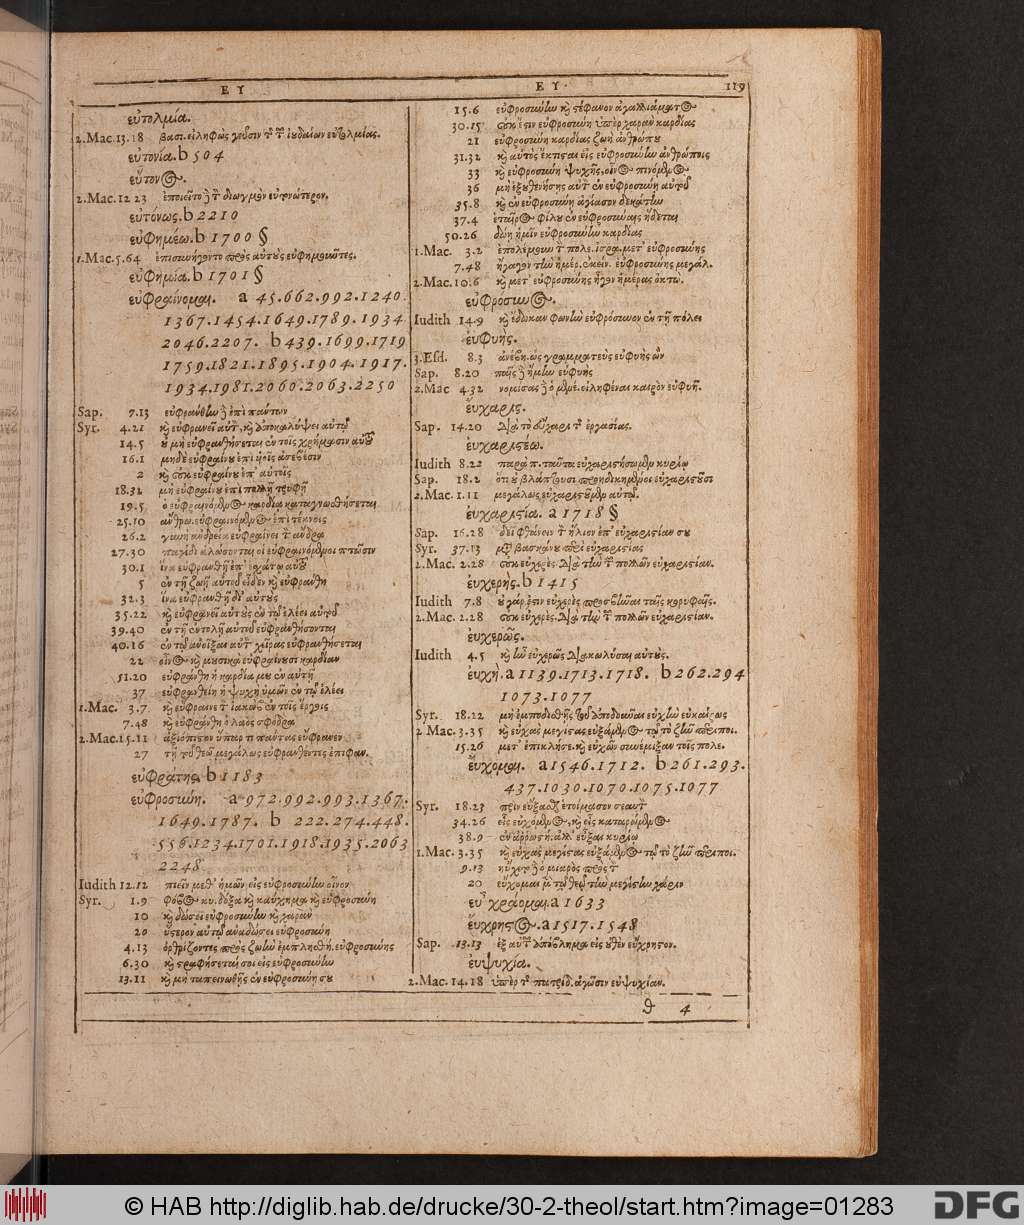 ΕΥ
ΕΥ.
119
εὐτολμία.
2.Mac.13.18
εὐτονία. b 504
εὔτονος.
2.Mac.12 23
εὐτόνως. b 2210
εὐφημέω. b 1700 §
1.Mac.5.64
εὐφημία. b 1701 §
εὐφραίνομαι. a 45.662.992.1240.
1367.1454.1649.1789.1934
2046.2207. b 439.1699.1719
1759.1821.1895.1904.1917.
1934.1981.2060.2063.2250
Sap. 7.13 εὐφράνθην ἐπὶ πάντων
Syr. 4.21 καὶ εὐφρανεῖ αὐτὸν, καὶ ἀποκαλύψει αὐτῷ
14.5 οὐ μὴ εὐφρανθήσεται ἐν τοῖς χρήμασιν αὐτοῦ
16.1 μηδὲ εὐφραίνου ἐπὶ υἱοῖς ἀσεβέσιν
2 καὶ οὐκ εὐφραίνου ἐπ' αὐτοῖς
18.32 μὴ εὐφραίνου ἐπὶ πολλῇ τρυφῇ
19.5 ὁ εὐφραινόμενος καρδίᾳ καταγνωσθήσεται
25.10 ἄνθρω. εὐφραινόμενος ἐπὶ τέκνοις
26.2 γυνὴ ἀνδρεία εὐφραίνει τὸν ἄνδρα
27.30 παγίδι ἁλώσονται οἱ εὐφραινόμενοι πτώσιν
30.1 ἵνα εὐφρανθῇ ἐπ' ἐσχάτῳ αὐτοῦ
5 ἐν τῇ ζωῇ αὐτοῦ εἶδεν καὶ εὐφράνθη
32.3 ἵνα εὐφρανθῇ δι' αὐτοὺς
35.22 καὶ εὐφρανεῖ αὐτοὺς ἐν τῷ ἐλέει αὐτοῦ
39.40 ἐν τῇ ἐντολῇ αὐτοῦ εὐφρανθήσονται
40.16 ἐν τῷ ἀνοῖξαι αὐτὸν χεῖρας εὐφρανθήσεται
22 οἶνος καὶ μουσικὰ εὐφραίνουσι καρδίαν
51.20 εὐφράνθη ἡ καρδία μου ἐν αὐτῇ
37 εὐφρανθείη ἡ ψυχὴ ὑμῶν ἐν τῷ ἐλέει
1.Mac. 3.7 καὶ εὔφραινε τὸν ἰακὼβ ἐν τοῖς ἔργοις
7.48 καὶ εὐφράνθη ὁ λαὸς σφόδρα
2.Mac.15.11
27
εὐφράτης. b 1183
εὐφροσύνη. a 972.992.993.1367.
1649.1787. b 222.274.448.
556.1234.1701.1918.1935.2063
2248
Iudith 12.12 πιεῖν μεθ' ἡμῶν εἰς εὐφροσύνην οἶνον
Syr. 1.9 φόβος κυ. δόξα καὶ καύχημα καὶ εὐφροσύνη
10 καὶ δώσει εὐφροσύνην καὶ χαρὰν
20 ὕστερον αὐτῷ ἀναδώσει εὐφροσύνη
4.13 ὀρθρίζοντες πρὸς ζωὴν ἐμπλησθή. εὐφροσύνης
6.30 καὶ στραφήσεταί σοι εἰς εὐφροσύνην
13.11 καὶ μὴ ταπεινωθῇς ἐν εὐφροσύνῃ σου
15.6 εὐφροσύνην καὶ στέφανον ἀγαλλιάματος
30.15 οὐκ ἔστιν εὐφροσύνη ὑπὲρ χαρὰν καρδίας
21 εὐφροσύνη καρδίας ζωὴ ἀνθρώπου
31.32 καὶ αὐτὸς ἔκτισται εἰς εὐφροσύνην ἀνθρώποις
33 καὶ εὐφροσύνη ψυχῆς, οἶνος πινόμενος
36 μὴ ἐξουθενήσῃς αὐτὸν ἐν εὐφροσύνῃ αὐτοῦ
35.8 καὶ ἐν εὐφροσύνῃ ἁγίασον δεκάτην
37.4 ἑταῖρος φίλου ἐν εὐφροσύναις ἥδεται
50.26 δῴη ἡμῖν εὐφροσύνην καρδίας
1.Mac. 3.2 ἐπολέμουν τὸν πολε. ἰσρα. μετ' εὐφροσύνης
7.48 ἤγαγον τὴν ἡμέρ. ἐκείν. εὐφροσύνης μεγάλ.
2.Mac. 10.6 καὶ μετ' εὐφροσύνης ἦγον ἡμέρας ὀκτώ.
εὐφρόσυνος.
Iudith 14.9 καὶ ἔδωκαν φωνὴν εὐφρόσυνον ἐν τῇ πόλει
εὐφυής.
3.Esd. 8.3 ἀνέβη, ὡς γραμματεὺς εὐφυὴς ὢν
Sap. 8.20 παῖς ἤμην εὐφυὴς
2.Mac 4.32
εὔχαρις.
Sap. 14.20 διὰ τὸ εὔχαρι τῆς ἐργασίας.
εὐχαριστέω.
Iudith 8.22 παρὰ π. ταῦτα εὐχαριστήσωμεν κυρίῳ
Sap. 18.2
2.Mac. 1.11 μεγάλως εὐχαριστοῦμεν αὐτῷ.
εὐχαριστία. a 1718 §
Sap. 16.28 δεῖ φθάνειν τὸν ἥλιον ἐπ' εὐχαριστίαν σου
Syr. 37.13 μετὰ βασκάνου περὶ εὐχαριστίας
2.Mac. 2.28 οὐκ εὐχερὲς. διὰ τὴν τῶν πολλῶν εὐχαριστίαν.
εὐχερής. b 1415
Iudith 7.8 οὐ γάρ ἐστιν εὐχερὲς προσβῆναι ταῖς κορυφαῖς.
2.Mac. 2.28 οὐκ εὐχερὲς. διὰ τὴν τῶν πολλῶν εὐχαριστίαν.
εὐχερῶς.
Iudith 4.5 καὶ ἦν εὐχερῶς διακωλῦσαι αὐτοὺς.
εὐχή. a 1139.1713.1718. b 262.294
1073.1077
Syr. 18.22 μὴ ἐμποδισθῇς τοῦ ἀποδοῦναι εὐχὴν εὐκαίρως
2.Mac. 3.35
15.26 μετ' ἐπικλήσε. καὶ εὐχῶν συνέμιξαν τοῖς πολε.
εὔχομαι. a 1546.1712. b 261.293.
437.1030.1070.1075.1077
Syr. 18.23 πρὶν εὔξασθαι ἑτοίμασον σεαυτὸν
34.26 εἷς εὐχόμενος, καὶ εἷς καταρώμενος
38.9 ἐν ἀρρωστή. ἀλλ' εὖξαι κυρίῳ
1.Mac. 3.35
9.13
20
εὐχράομαι. a 1633
εὔχρηστος. a 1517.1548
Sap. 13.13 ἐξ αὐτῶν ἀπόβλημα εἰς οὐθὲν εὔχρηστον.
εὐψυχία.
2.Mac. 14.18 ὑπὲρ τῆς πατρίδ. ἀγῶσιν εὐψυχίαν.
4
© HAB http://diglib.hab.de/drucke/30-2-theol/start.htm?image=01283
DFG